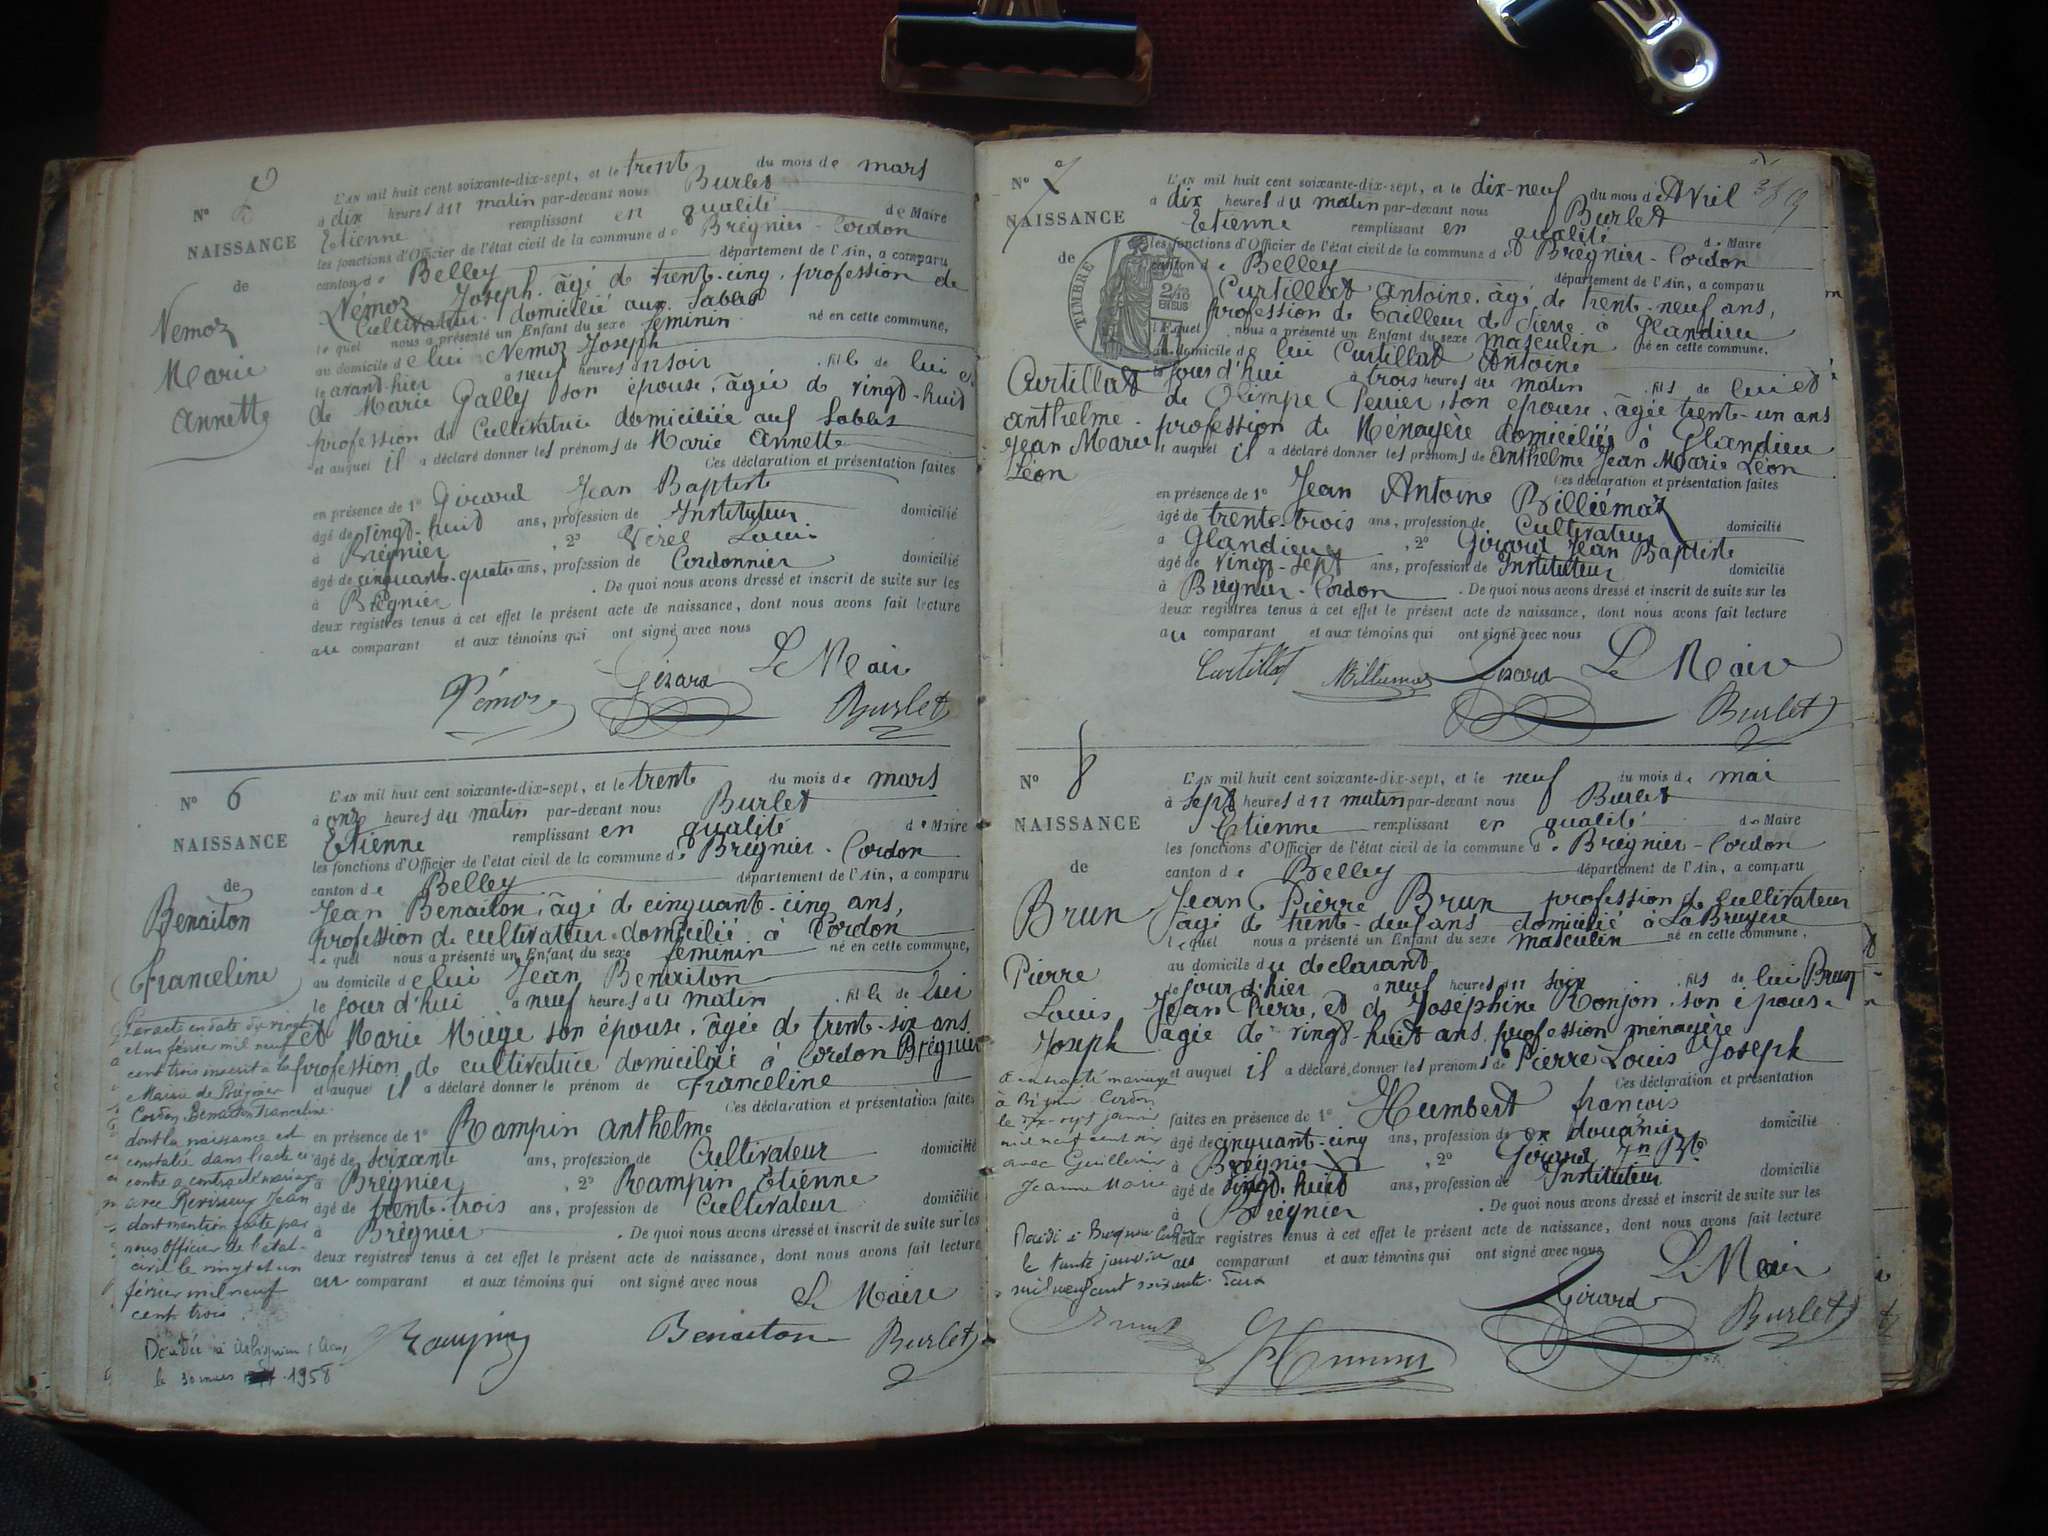 Nº
NAISSANCE
de
Nemoz
Marie
Annette
L'AN mil huit cent soixante-dix-sept, et le trente du mois de mars
à dix heures du matin par-devant nous Burlet
Etienne remplissant en qualité de Maire
les fonctions d'Officier de l'état civil de la commune de Brégnier-Cordon
canton de Belley département de l'Ain, a comparu
Némoz Joseph, âgé de trente-cinq, profession de
Cultivateur domicilié aux Sables
lequel nous a présenté un Enfant du sexe féminin né en cette commune,
au domicile de lui Nemoz Joseph
le avant-hier à neuf heures du soir fille de lui et
de Marie Gally son épouse, âgée de vingt-huit
profession de Cultivatrice domiciliée aux Sables
et auquel il a déclaré donner les prénoms de Marie Annette
Ces déclaration et présentation faites
en présence de 1º Girard Jean Baptiste
âgé de vingt-huit ans, profession de Instituteur domicilié
à Brégnier, 2º Louis
âgé de cinquante-quatre ans, profession de Cordonnier domicilié
à Brégnier. De quoi nous avons dressé et inscrit de suite sur les
deux registres tenus à cet effet le présent acte de naissance, dont nous avons fait lecture
au comparant et aux témoins qui ont signé avec nous
Le Maire
Némoz Girard Burlet
Nº 6
NAISSANCE
de
Benaiton
Franceline
Par acte en date du vingt
et un février mil neuf
cent trois inscrit à la
Mairie de Brégnier
Cordon Benaiton Franceline
dont la naissance est
constatée dans l'acte ci
contre a contracté mariage
avec Jean
dont mention faite par
nous officier de l'état-
civil le vingt et un
février mil neuf
cent trois
Décédée à
le 30 mars 1958
L'AN mil huit cent soixante-dix-sept, et le trente du mois de mars
à onze heures du matin par-devant nous Burlet
Etienne remplissant en qualité de Maire
les fonctions d'Officier de l'état civil de la commune de Brégnier-Cordon
canton de Belley département de l'Ain, a comparu
Jean Benaiton, âgé de cinquante-cinq ans,
profession de cultivateur domicilié à Cordon
lequel nous a présenté un Enfant du sexe féminin né en cette commune,
au domicile de lui Jean Benaiton
le jour d'hui à neuf heures du matin fille de lui
et Marie Miège son épouse, âgée de trente-six ans
profession de cultivatrice domiciliée à Cordon Brégnier
et auquel il a déclaré donner le prénom de Franceline
Ces déclaration et présentation faites
en présence de 1º Rampin Anthelme
âgé de soixante ans, profession de Cultivateur domicilié
à Brégnier, 2º Rampin Etienne
âgé de trente-trois ans, profession de Cultivateur domicilié
à Brégnier. De quoi nous avons dressé et inscrit de suite sur les
deux registres tenus à cet effet le présent acte de naissance, dont nous avons fait lecture
au comparant et aux témoins qui ont signé avec nous
Le Maire
Rampin Benaiton Burlet
Nº 7
NAISSANCE
de
TIMBRE
2/10
EN SUS
Curtillat
Anthelme
Jean Marie
Léon
L'AN mil huit cent soixante-dix-sept, et le dix-neuf du mois d'Avril
à dix heures du matin par-devant nous Burlet
Etienne remplissant en qualité de Maire
les fonctions d'Officier de l'état civil de la commune de Brégnier-Cordon
canton de Belley département de l'Ain, a comparu
Curtillat Antoine, âgé de trente-neuf ans,
profession de Tailleur de Pierre à Glandieu
lequel nous a présenté un Enfant du sexe masculin né en cette commune,
au domicile de lui Curtillat Antoine
le jour d'hui à trois heures du matin fils de lui et
de Olimpe son épouse, âgée trente-un ans
profession de Ménagère domiciliée à Glandieu
et auquel il a déclaré donner les prénoms de Anthelme Jean Marie Léon
Ces déclaration et présentation faites
en présence de 1º Jean Antoine Billiémaz
âgé de trente-trois ans, profession de Cultivateur domicilié
à Glandieu, 2º Girard Jean Baptiste
âgé de vingt-sept ans, profession de Instituteur domicilié
à Brégnier-Cordon. De quoi nous avons dressé et inscrit de suite sur les
deux registres tenus à cet effet le présent acte de naissance, dont nous avons fait lecture
au comparant et aux témoins qui ont signé avec nous
Curtillat Girard Le Maire
Burlet
Nº 8
NAISSANCE
de
Brun
Pierre
Louis
Joseph
A contracté mariage
à Brégnier Cordon
le dix-sept janvier
mil neuf cent six
avec Guillermin
Jeanne Marie
Décédé à Brégnier Cordon
le trente janvier
mil neuf cent soixante-deux
L'AN mil huit cent soixante-dix-sept, et le neuf du mois de mai
à sept heures du matin par-devant nous Burlet
Etienne remplissant en qualité de Maire
les fonctions d'Officier de l'état civil de la commune de Brégnier-Cordon
canton de Belley département de l'Ain, a comparu
Jean Pierre Brun profession de Cultivateur
âgé de trente-deux ans domicilié à La Bruyère
lequel nous a présenté un Enfant du sexe masculin né en cette commune,
au domicile du déclarant
le jour d'hier à neuf heures du soir fils de lui Brun
Jean Pierre, et de Joséphine Ronjon, son épouse
âgée de vingt-huit ans profession ménagère
et auquel il a déclaré donner les prénoms de Pierre Louis Joseph
Ces déclaration et présentation
faites en présence de 1º Humbert françois
âgé de cinquante-cinq ans, profession de ex douanier domicilié
à Brégnier, 2º Girard Jn Bte
âgé de vingt-huit ans, profession de Instituteur domicilié
à Brégnier. De quoi nous avons dressé et inscrit de suite sur les
deux registres tenus à cet effet le présent acte de naissance, dont nous avons fait lecture
au comparant et aux témoins qui ont signé avec nous
Le Maire
Brun Girard Burlet